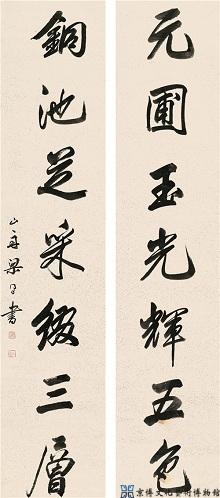 元圃玉光輝五色
銅池芝采綴三層
山舟梁同書
京博文化藝術博物館